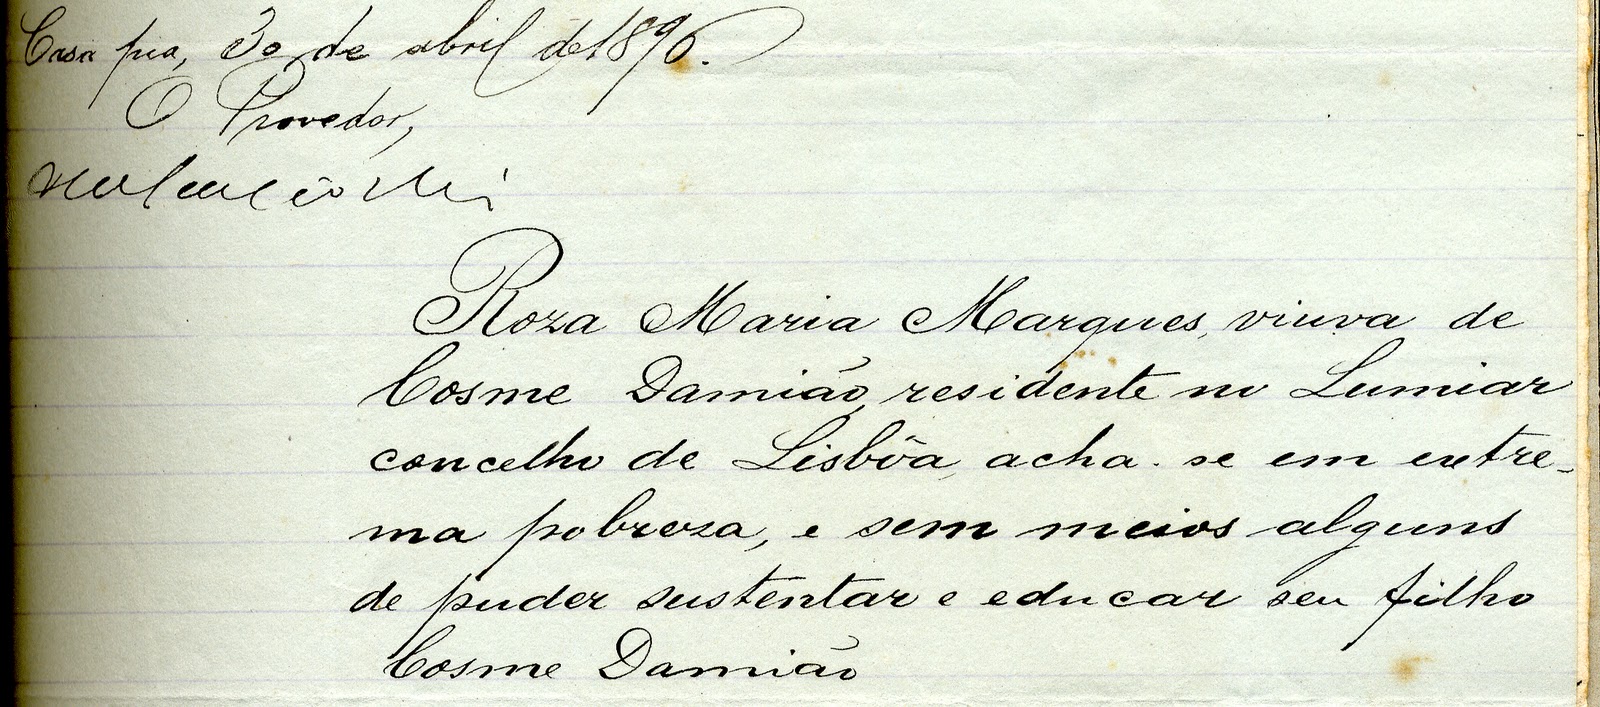 Casa pia, 30 de abril de 1896.
O Provedor,
Roza Maria Marques, viuva de
Cosme Damião, residente no Lumiar
concelho de Lisbôa, acha-se em extre-
ma pobreza, e sem meios alguns
de puder sustentar e educar seu filho
Cosme Damião